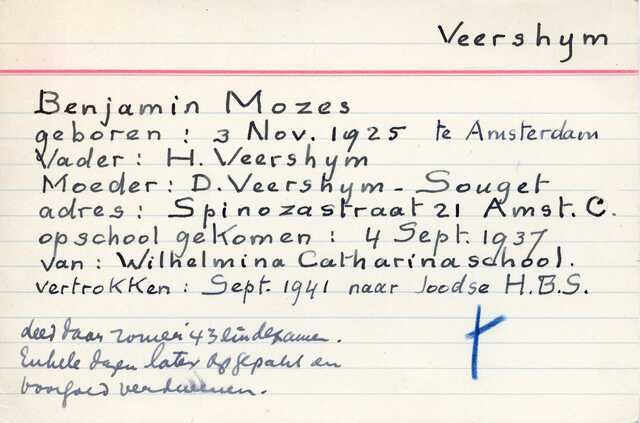 Veershym
Benjamin Mozes
geboren : 3 Nov. 1925 te Amsterdam
Vader : H. Veershym
Moeder : D. Veershym - Souget
adres : Spinozastraat 21 Amst. C.
op school gekomen : 4 Sept. 1937
van : Wilhelmina Catharinaschool.
vertrokken : Sept. 1941 naar Joodse H.B.S.
deed daar zomer '43 eindexamen.
Enkele dagen later opgepakt en
voorgoed verdwenen.